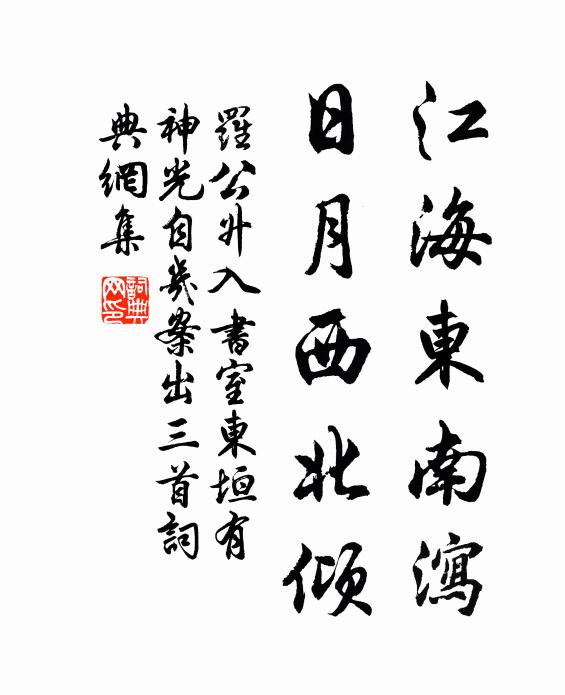 江海東南瀉
日月西北傾
羅公升入書室東垣有
神光自幾案出三首詞
典網集
詞典網印